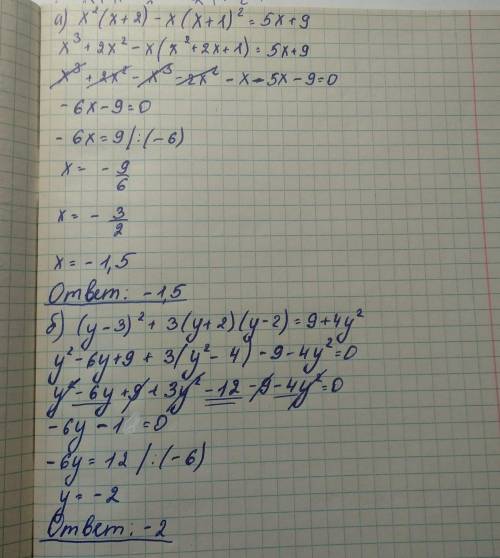 а) x²(x+2) - x(x+1)² = 5x+9
x³ + 2x² - x(x²+2x+1) = 5x+9
x³ + 2x² - x³ - 2x² - x - 5x - 9 = 0
-6x - 9 = 0
-6x = 9 /:(-6)
x = - 9/6
x = - 3/2
x = - 1,5
Ответ: -1,5
б) (y-3)² + 3(y+2)(y-2) = 9+4y²
y² - 6y + 9 + 3(y² - 4) - 9 - 4y² = 0
y² - 6y + 9 + 3y² - 12 - 9 - 4y² = 0
-6y - 1 = 0
-6y = 12 /:(-6)
y = -2
Ответ: -2